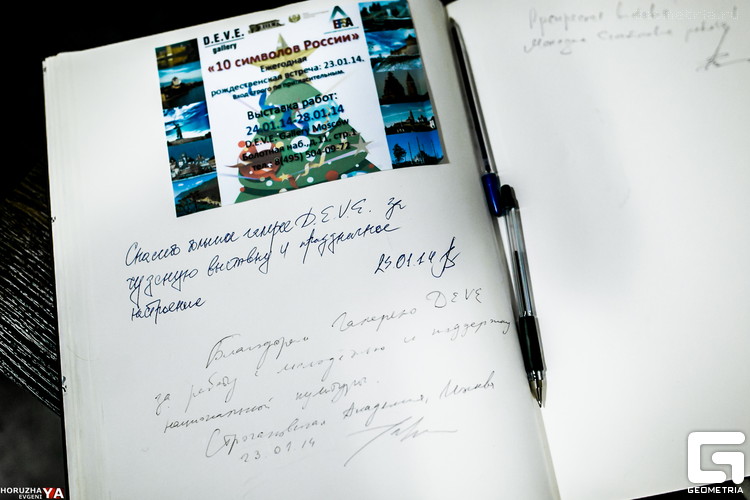 D.E.V.E.
gallery
«10 символов России»
Ежегодная
рождественская встреча: 23.01.14.
Вход строго по пригласительным.
Выставка работ:
24.01.14-28.01.14
D.E.V.E. Gallery Moscow
Болотная наб., д.11, стр.1
тел.+8(495) 504-09-72
Спасибо большое галерее D.E.V.E. за
чудесную выставку и праздничное
настроение
23.01.14
Благодарю Галерею DEVE
за работу с молодёжью и поддержку
национальной культуры.
Строгановская Академия, Москва
23.01.14
Прекрасная выставка!
HORUZHAYA
EVGENI
GEOMETRIA